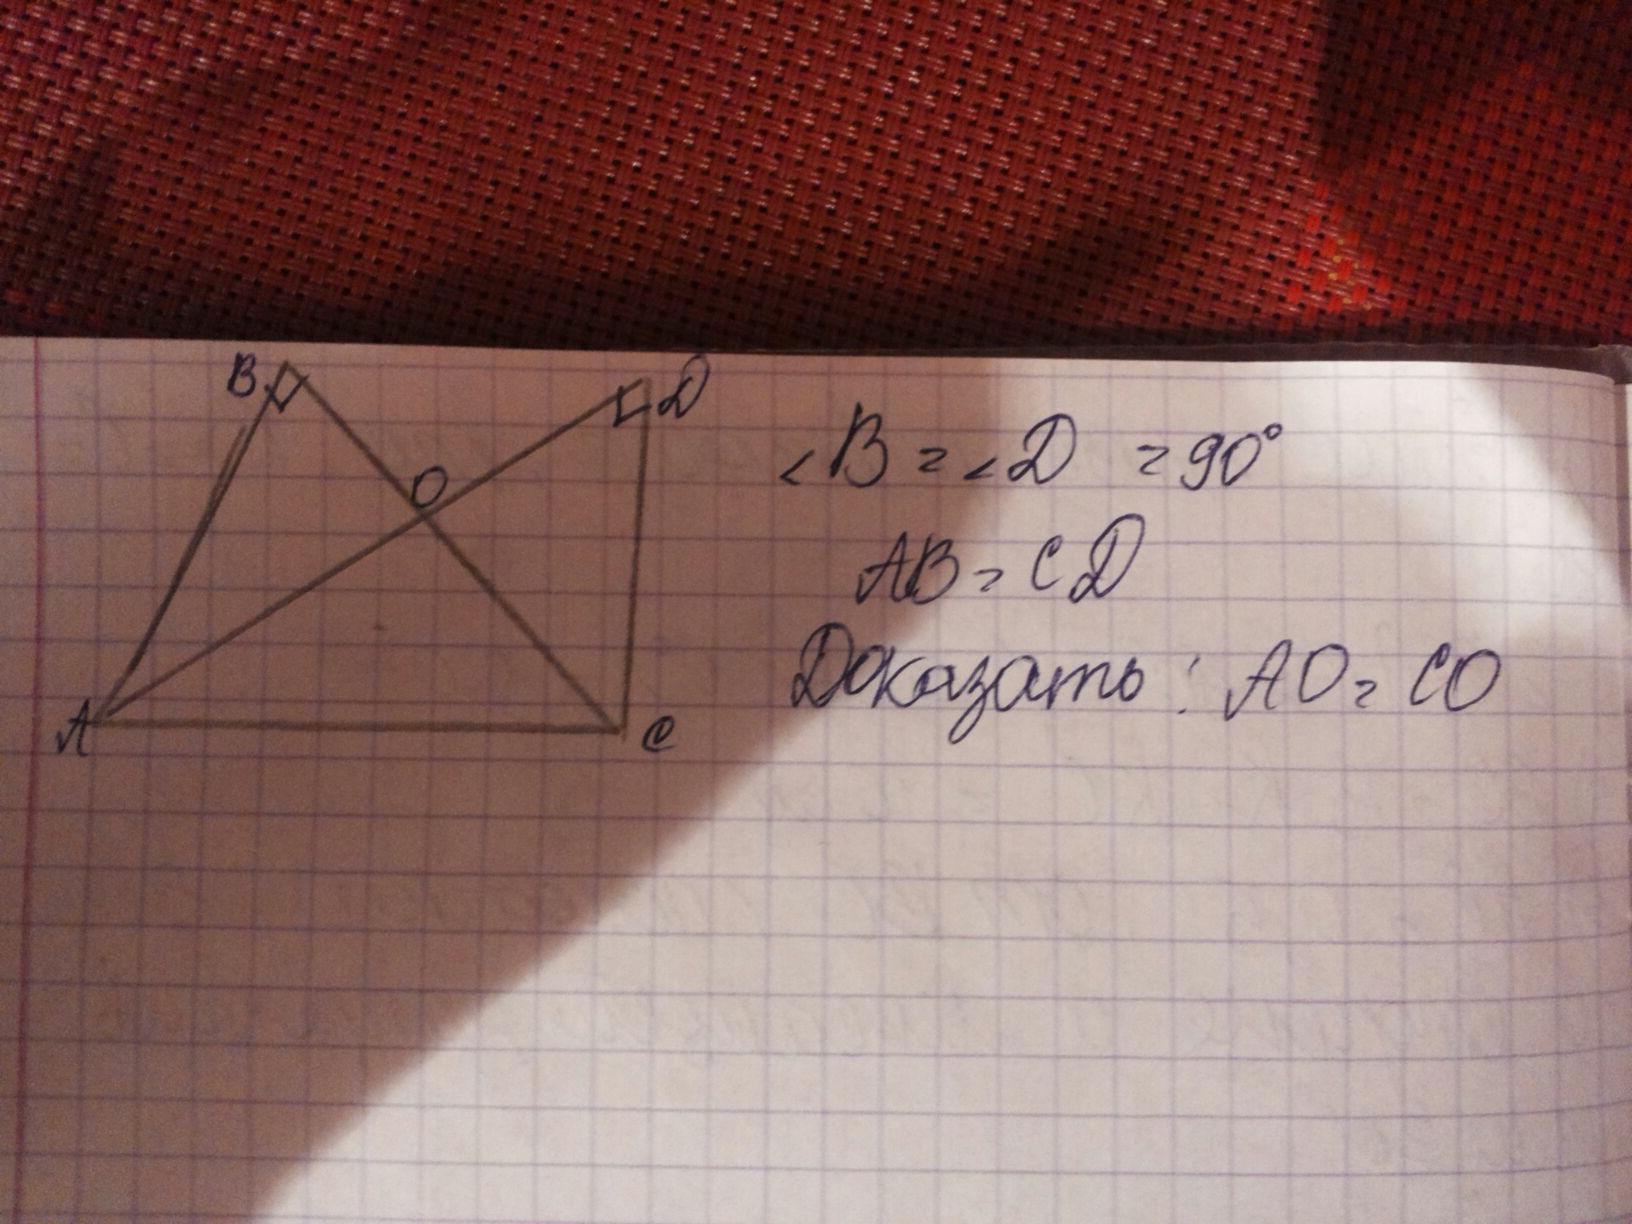 B
D
O
A
C
<B = <D = 90°
AB = CD
Доказать: AO = CO